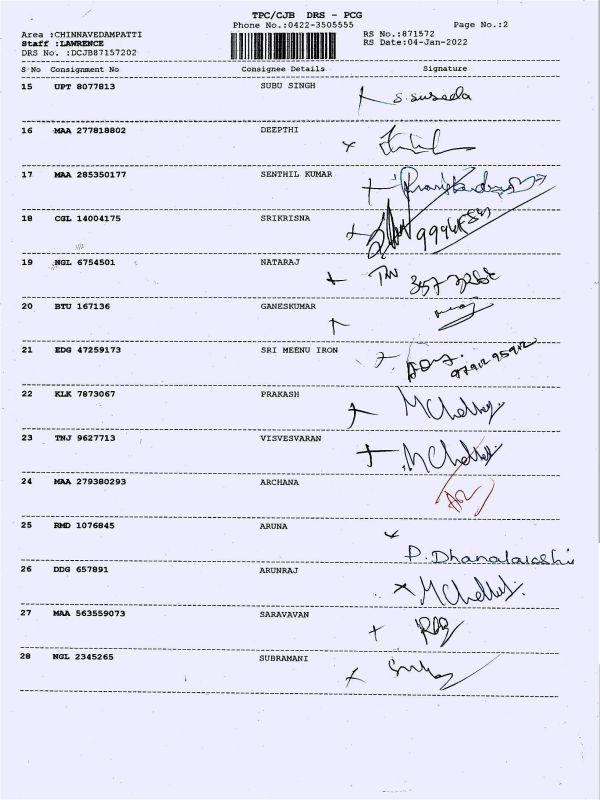 TPC/CJB DRS - PCG
Phone No.:0422-3505555 Page No.:2
Area :CHINNAVEDAMPATTI RS No.:871572
Staff :LAWRENCE RS Date:04-Jan-2022
DRS No. :DCJB87157202
S No Consignment No Consignee Details Signature
15 UPT 8077813 SUBU SINGH S. Suseela
16 MAA 277818802 DEEPTHI
17 MAA 285350177 SENTHIL KUMAR
18 CGL 14004175 SRIKRISNA
19 NGL 6754501 NATARAJ TN
20 BTU 167136 GANESKUMAR
21 EDG 47259173 SRI MEENU IRON
22 KLK 7873067 PRAKASH
23 TNJ 9627713 VISVESVARAN
24 MAA 279380293 ARCHANA
25 RMD 1076845 ARUNA P. Dhanalakshi
26 DDG 657891 ARUNRAJ
27 MAA 563559073 SARAVAVAN
28 NGL 2345265 SUBRAMANI